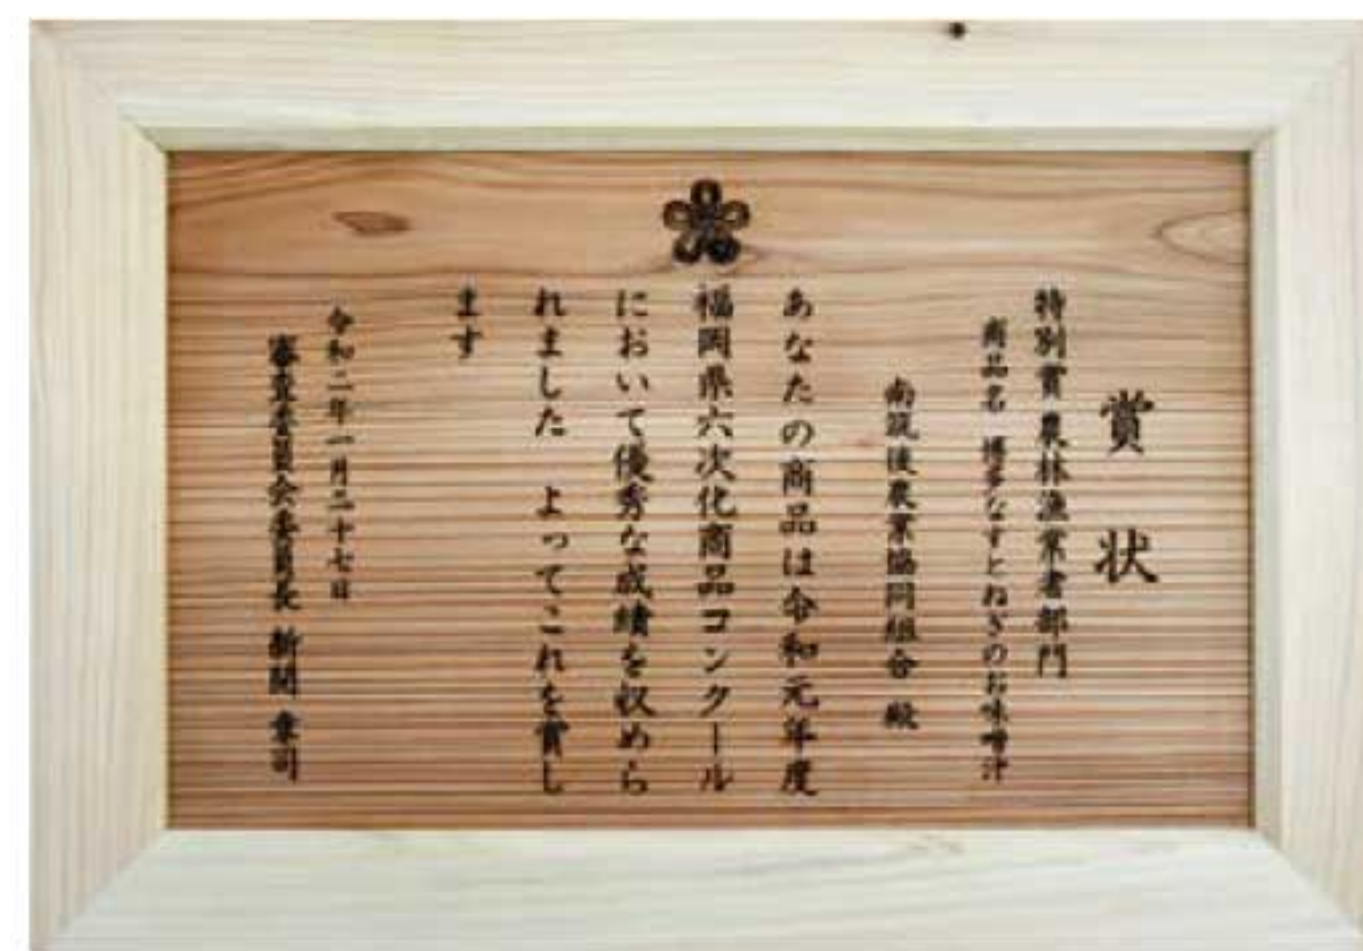 賞状
特別賞 農林漁業者部門
商品名 博多なすとねぎのお味噌汁
南筑後農業協同組合 殿
あなたの商品は令和元年度
福岡県六次化商品コンクール
において優秀な成績を収めら
れました よってこれを賞し
ます
令和二年一月二十七日
審査委員会委員長 新開 章司